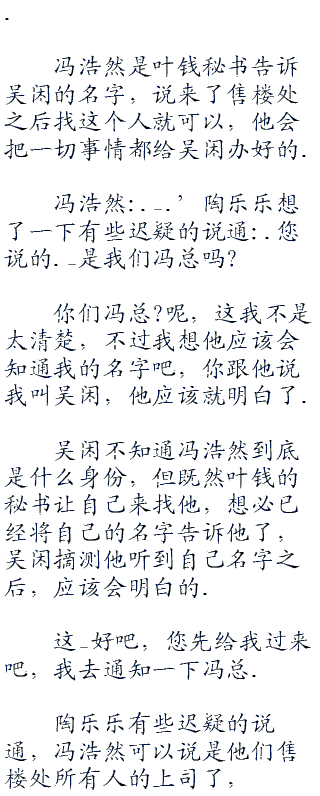 .
冯浩然是叶钱秘书告诉
吴闲的名字，说来了售楼处
之后找这个人就可以，他会
把一切事情都给吴闲办好的.
冯浩然:._.’陶乐乐想
了一下有些迟疑的说通:.您
说的._是我们冯总吗?
你们冯总?呢，这我不是
太清楚，不过我想他应该会
知通我的名字吧，你跟他说
我叫吴闲，他应该就明白了.
吴闲不知通冯浩然到底
是什么身份，但既然叶钱的
秘书让自己来找他，想必已
经将自己的名字告诉他了，
吴闲摘测他听到自己名字之
后，应该会明白的.
这_好吧，您先给我过来
吧，我去通知一下冯总.
陶乐乐有些迟疑的说
通，冯浩然可以说是他们售
楼处所有人的上司了，